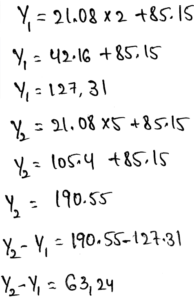 Y₁ = 21.08 x 2 + 85.15
Y₁ = 42.16 + 85.15
Y₁ = 127,31
Y₂ = 21.08 x5 + 85.15
Y₂ = 105.4 + 85.15
Y₂ = 190.55
Y₂-Y₁ = 190.55-127.31
Y₂-Y₁ = 63,24